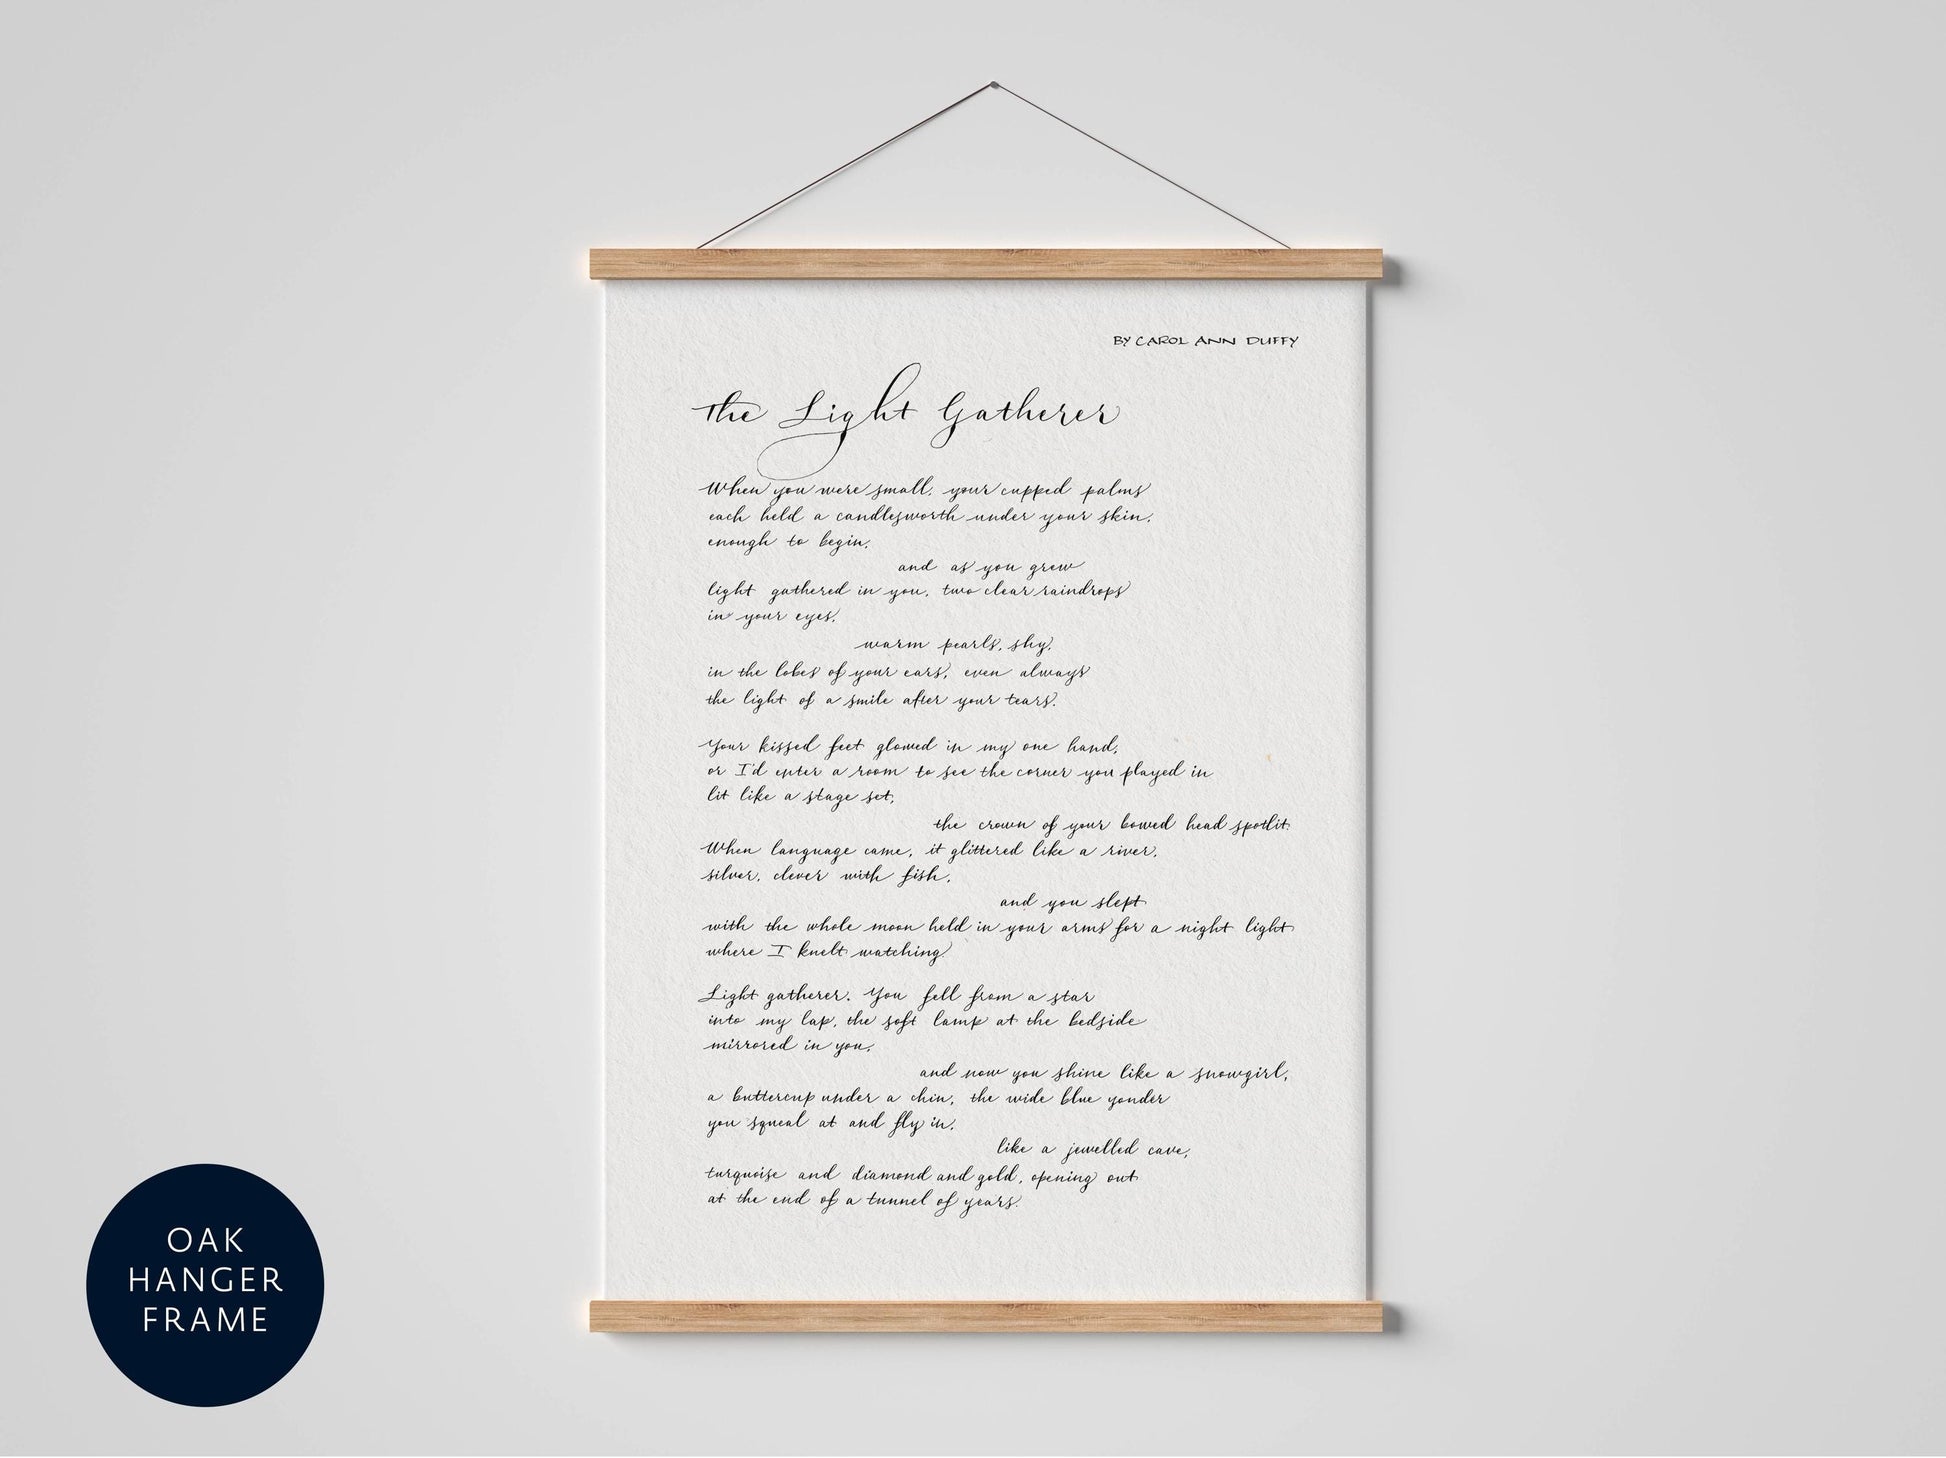 BY CAROL ANN DUFFY
The Light Gatherer
When you were small, your cupped palms
each held a candlesworth under your skin,
enough to begin,
and as you grew
light gathered in you, two clear raindrops
in your eyes,
warm pearls, shy,
in the lobes of your ears, even always
the light of a smile after your tears.
Your kissed feet glowed in my one hand,
or I'd enter a room to see the corner you played in
lit like a stage set,
the crown of your bowed head spotlit.
When language came, it glittered like a river,
silver, clever with fish,
and you slept
with the whole moon held in your arms for a night light
where I knelt watching.
Light gatherer. You fell from a star
into my lap, the soft lamp at the bedside
mirrored in you,
and now you shine like a snowgirl,
a buttercup under a chin, the wide blue yonder
you squeal at and fly in,
like a jewelled cave,
turquoise and diamond and gold, opening out
at the end of a tunnel of years.
OAK
HANGER
FRAME